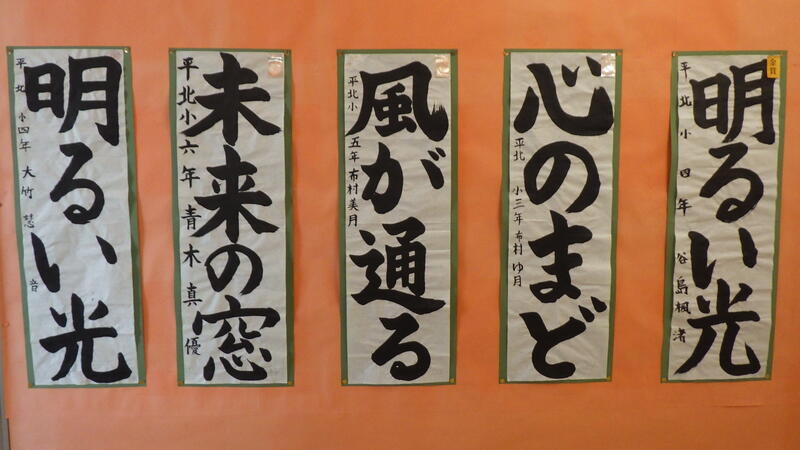 明るい光
平北小四年 大竹慧音
未来の窓
平北小六年青木真優
風が通る
平北小五年布村美月
心のまど
平北小三年布村ゆ月
明るい光
平北小四年谷島楓渚
金賞